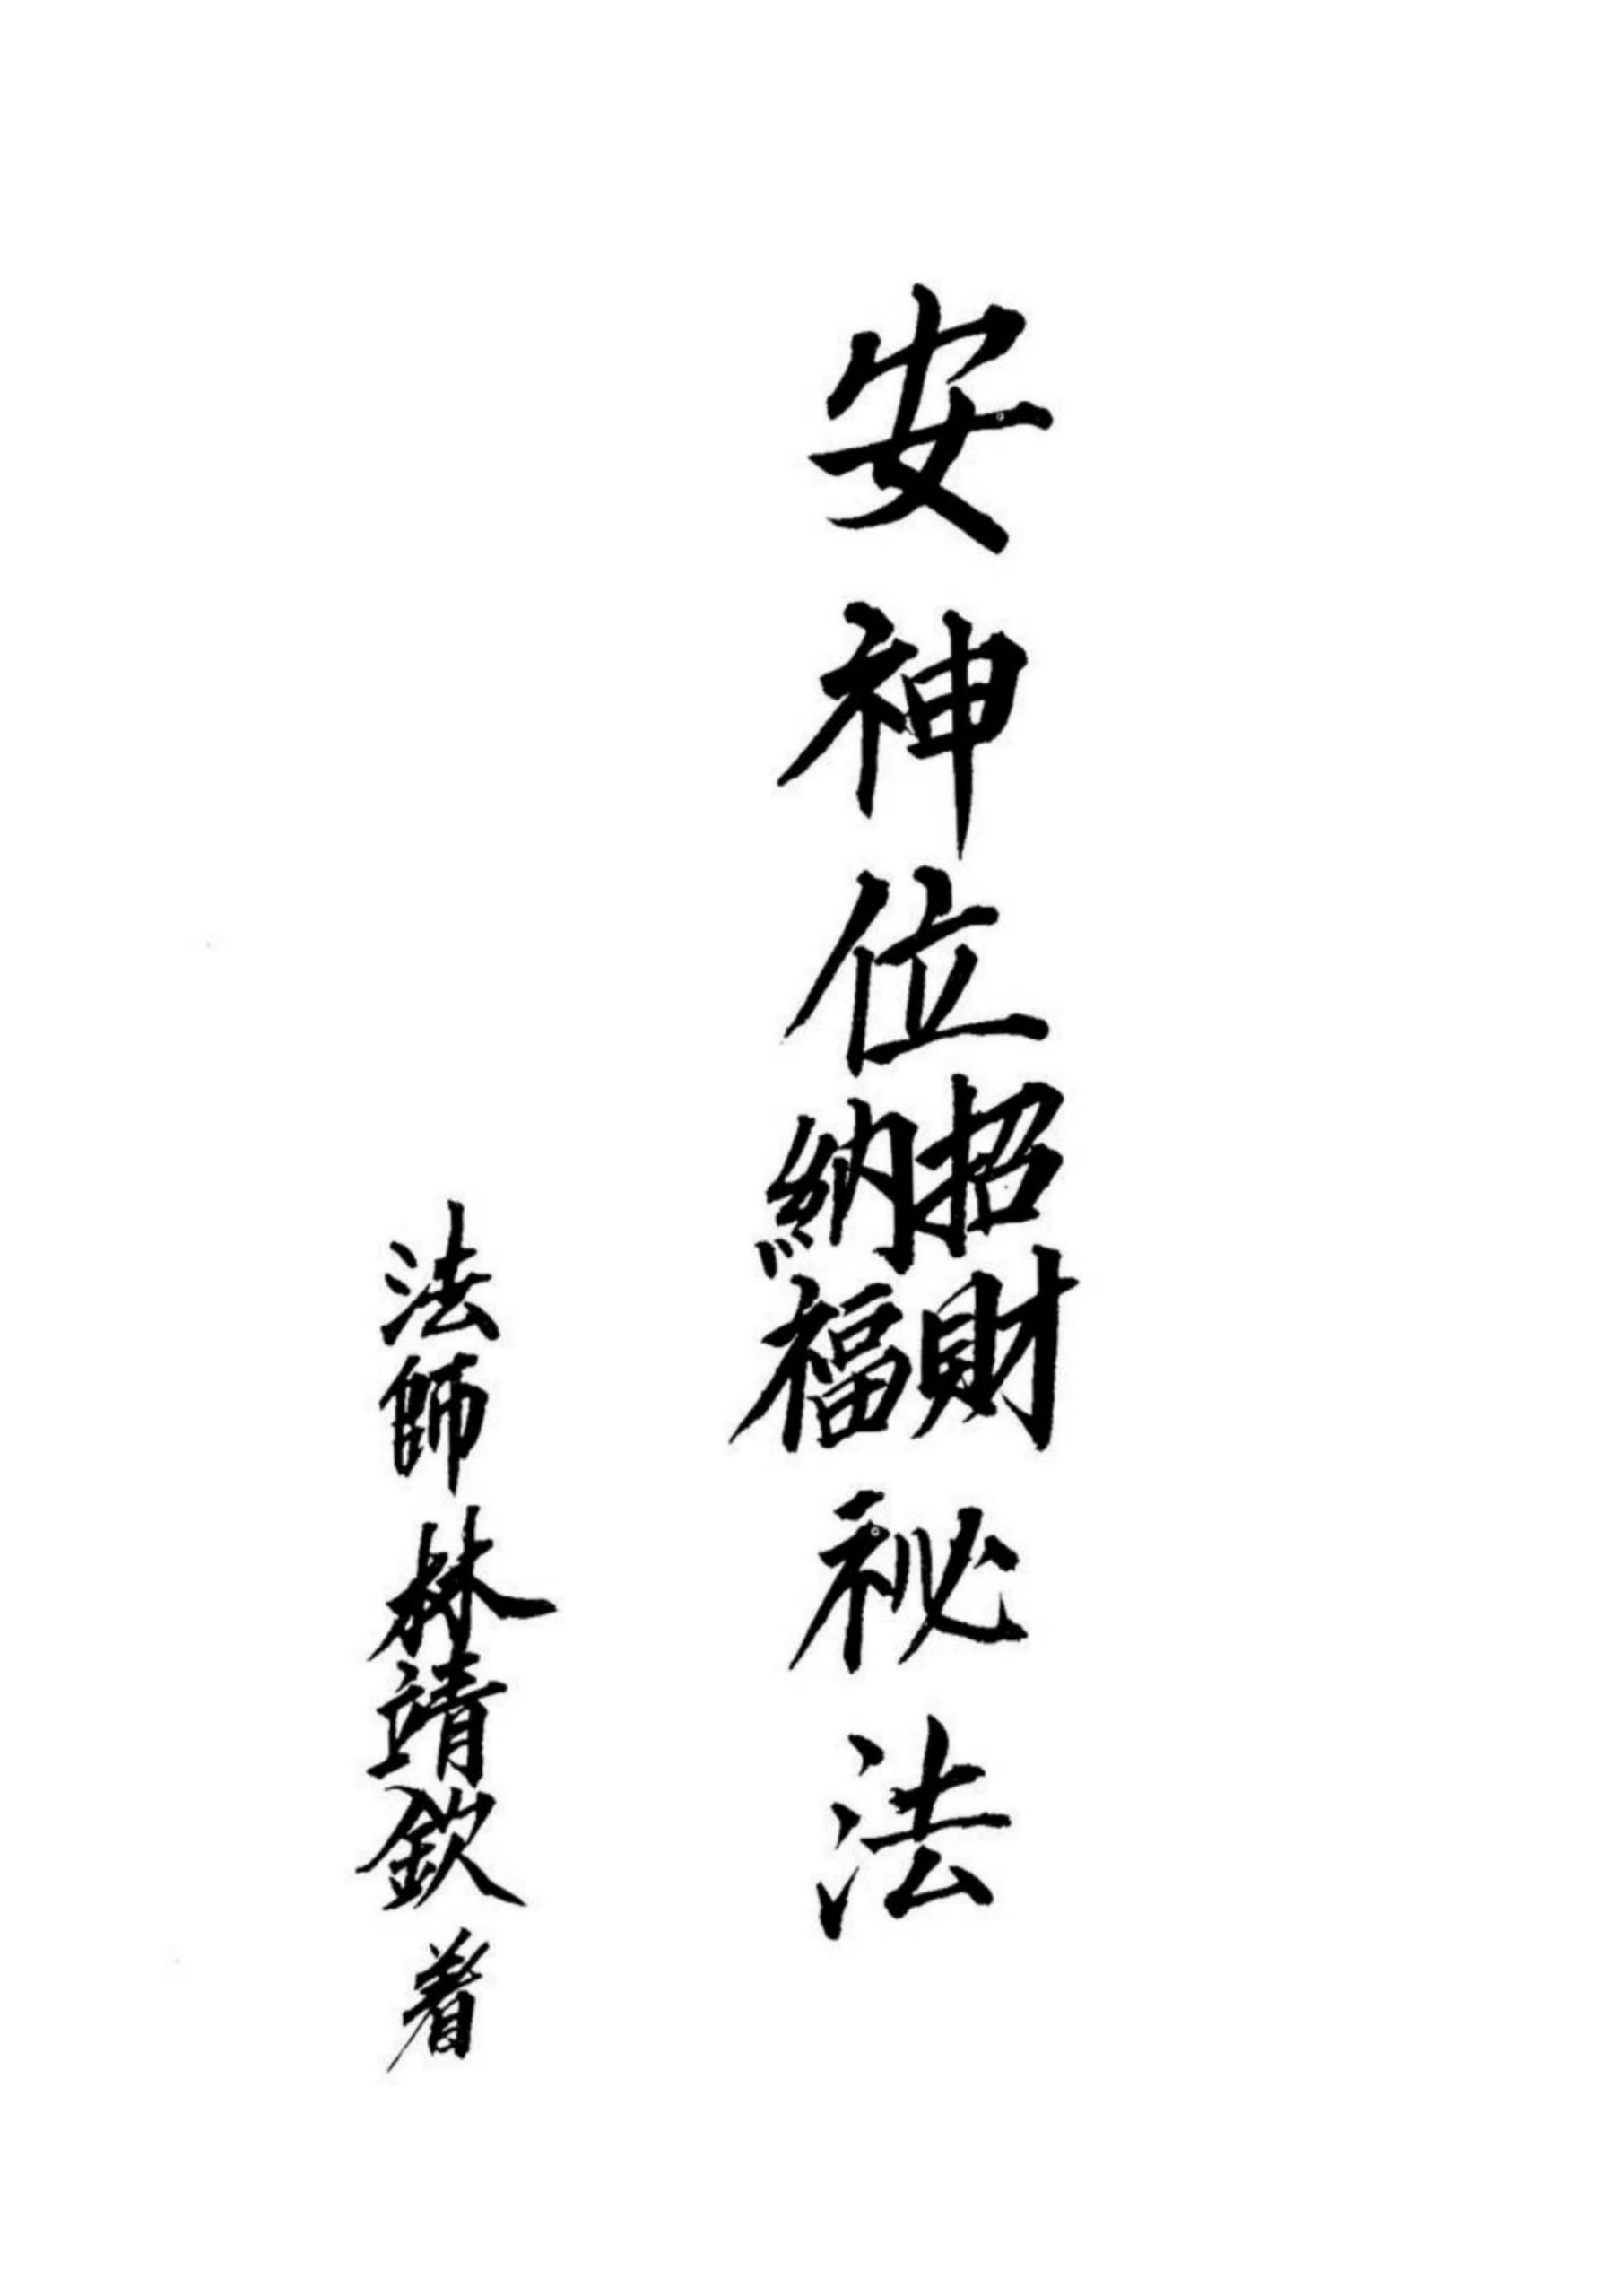 安神位招財納福秘法
法師林靖欽著